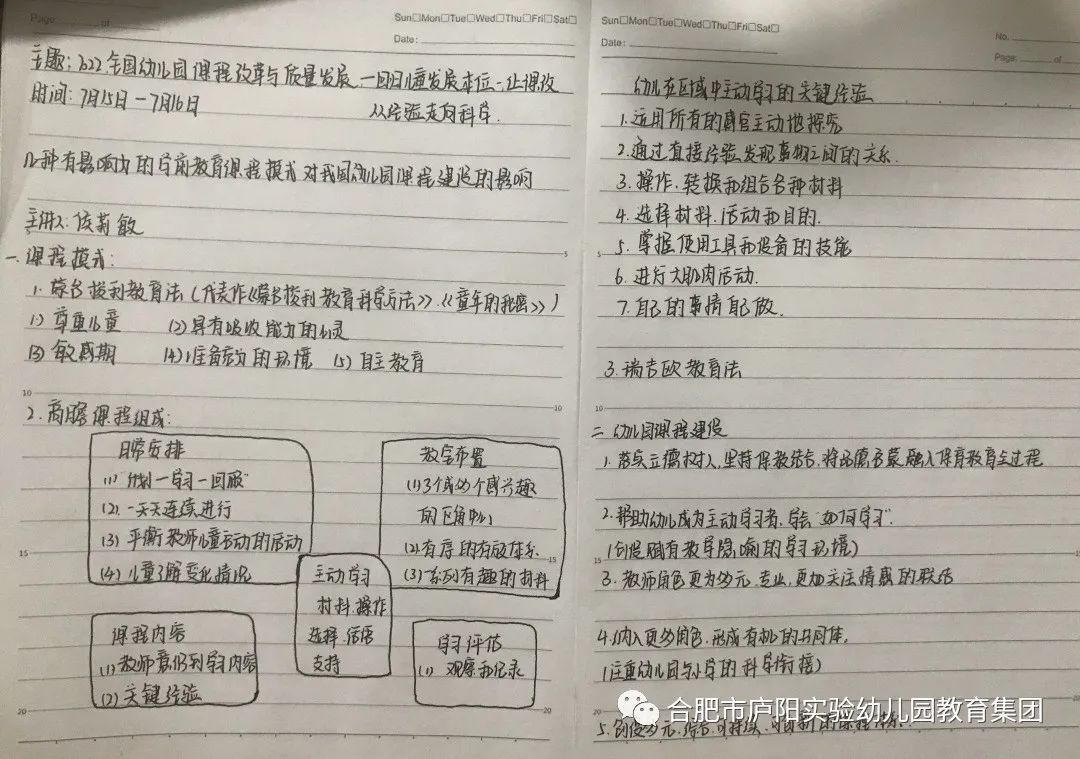 Page of
Sun□Mon□Tue□Wed□Thu□Fri□Sat□
Date:
主题:2022全国幼儿园课程改革与质量发展.一回归儿童发展本位-让课改
时间:7月15日-7月16日 从经验走向科学.
几种有影响力的学前教育课程模式对我国幼儿园课程建设的影响
主讲人:侯莉敏
一.课程模式:
1.蒙台梭利教育法(代表作《蒙台梭利教育科学方法》.《童年的秘密》)
(1)尊重儿童 (2)具有吸收能力的心灵
(3)敏感期 (4)准备充分的环境 (5)自主教育
2.高瞻课程组成:
日常安排
(1)"计划-学习-回顾"
(2).一天天连续进行
(3)平衡教师儿童互动的活动
(4)儿童了解变化情况
教室布置
(1)3个或多个感兴趣
的区角中心
(2)有序的存放体系
(3)系列有趣的材料
主动学习
材料.操作
选择.语言
支持
课程内容
(1)教师意识到学习内容
(2)关键经验
学习评估
(1)观察和记录
Sun□Mon□Tue□Wed□Thu□Fri□Sat□
Date:
No.
Page: of
幼儿在区域中主动学习的关键经验
1.运用所有的感官主动地探究
2.通过直接经验发现事物之间的关系.
3.操作.转换和组合各种材料
4.选择材料.活动和目的.
5.掌握使用工具和设备的技能
6.进行大肌肉活动.
7.自己的事情自己做.
3.瑞吉欧教育法
二.幼儿园课程建设
1.落实立德树人,坚持保教结合,将品德启蒙融入保育教育全过程
2.帮助幼儿成为主动学习者,学会"如何学习".
(创设赋有教导隐喻的学习环境)
3.教师角色更为多元.专业,更加关注情感的联结
4.纳入更多角色.形成有机的共同体.
(注重幼儿园与小学的科学衔接)
5.创设多元.综合.可持续.
合肥市庐阳实验幼儿园教育集团